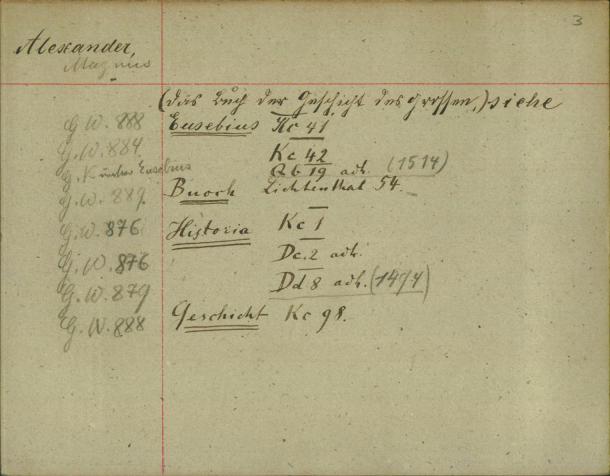 3
Alexander,
Magnus
(das Buch der Geschicht des grossen,) siehe
G.W. 888 Eusebius Kc 41
G.W. 884 Kc 42
G.K unter Eusebius Ab 19 adh. (1514)
G.W. 889. Buoch Lichtenthal 54.
G.W. 876 Historia Kc 1
G.W. 876 Dc. 2 adh.
G.W. 879 Dd 8 adh. (1474)
G.W. 888 Geschicht Kc 98.